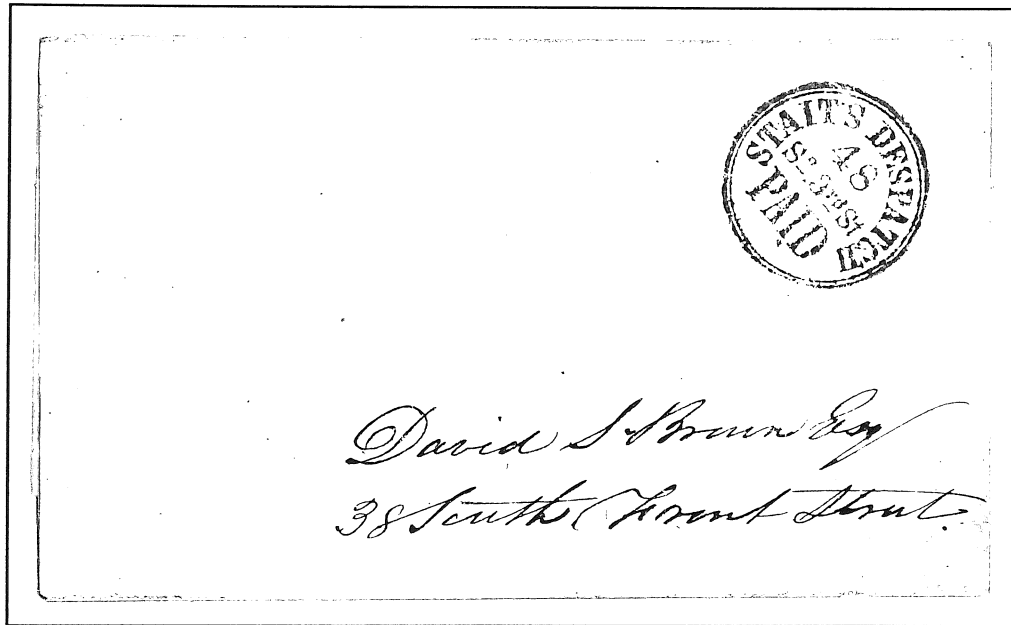 STAIT'S DESPATCH
48
Sº. 3rd St
PAID
David S. Brown Esq
38 South Front Street.